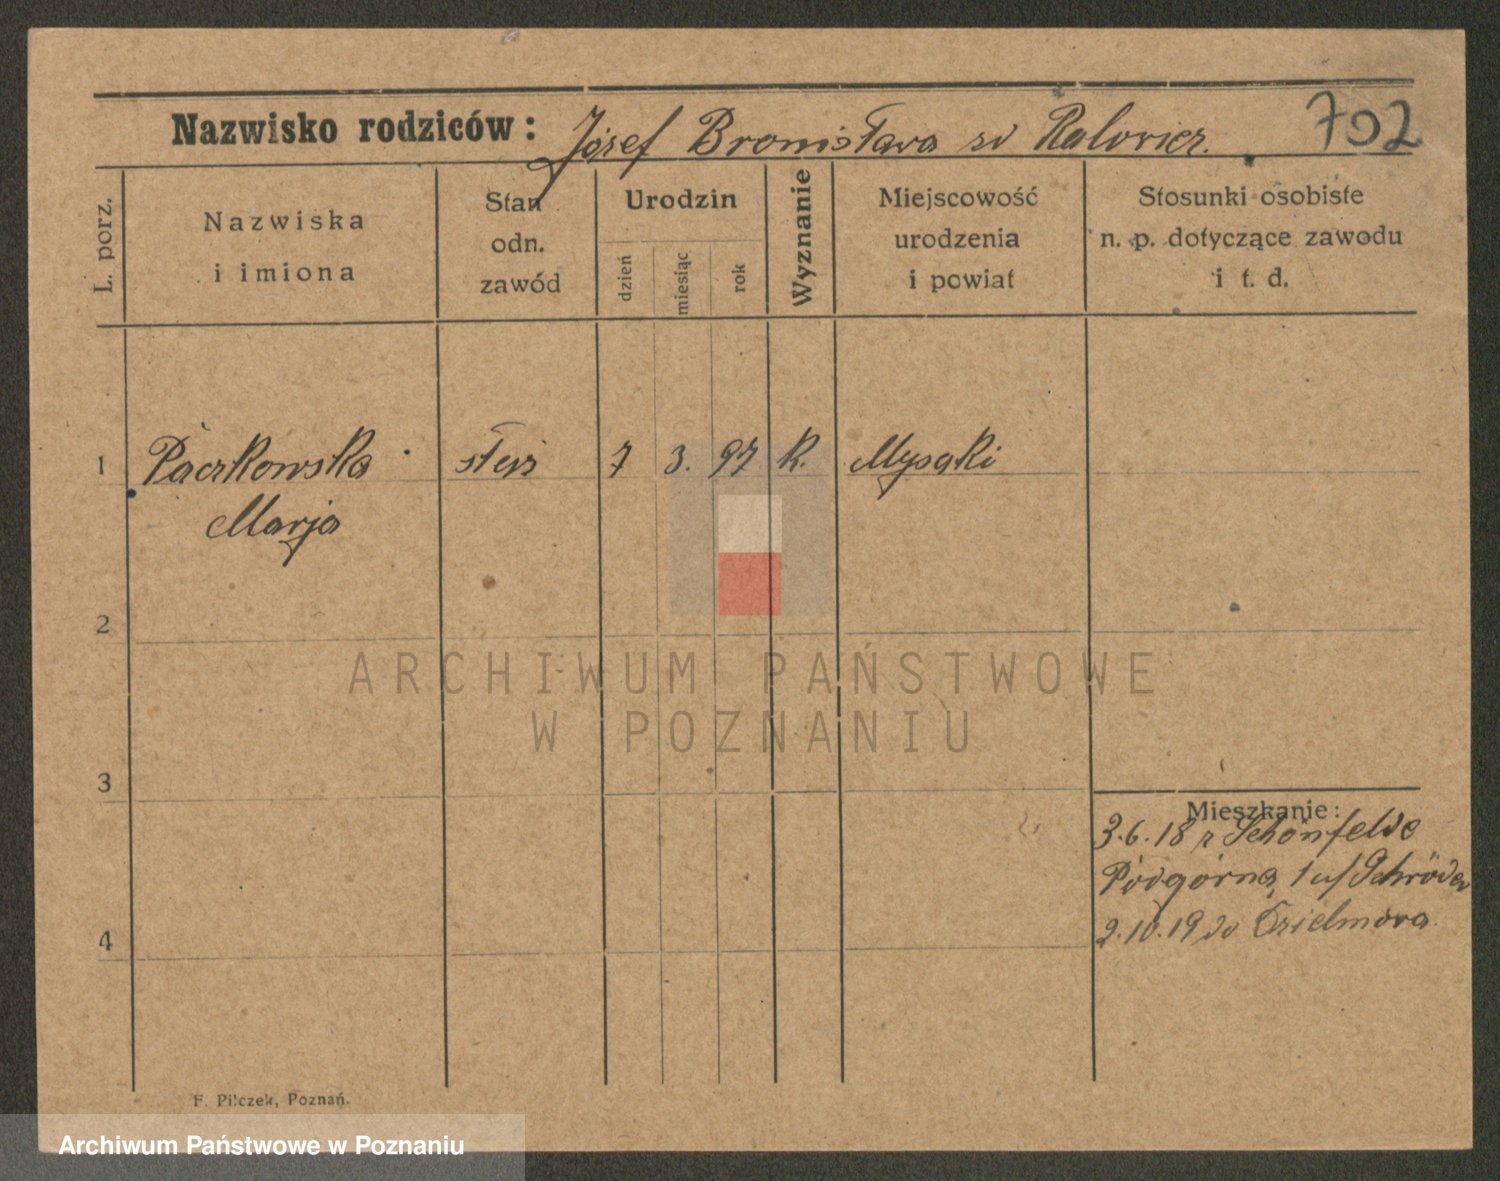 Nazwisko rodziców: Józef Bronisława zd Ralovicz. 702
L. porz.
Nazwiska
i imiona
Stan
odn.
zawód
Urodzin
dzień
miesiąc
rok
Wyznanie
Miejscowość
urodzenia
i powiat
Stosunki osobiste
n. p. dotyczące zawodu
i t. d.
1 Paczkowska 7 3. 97 k. Mysątki
Marja
2
ARCHIWUM PAŃSTWOWE
W POZNANIU
3
Mieszkanie:
3.6.18 z Schönfelde
Podgórna, 1 u/ Schröder
4
2.10.19 do
F. Pilczek, Poznań.
Archiwum Państwowe w Poznaniu